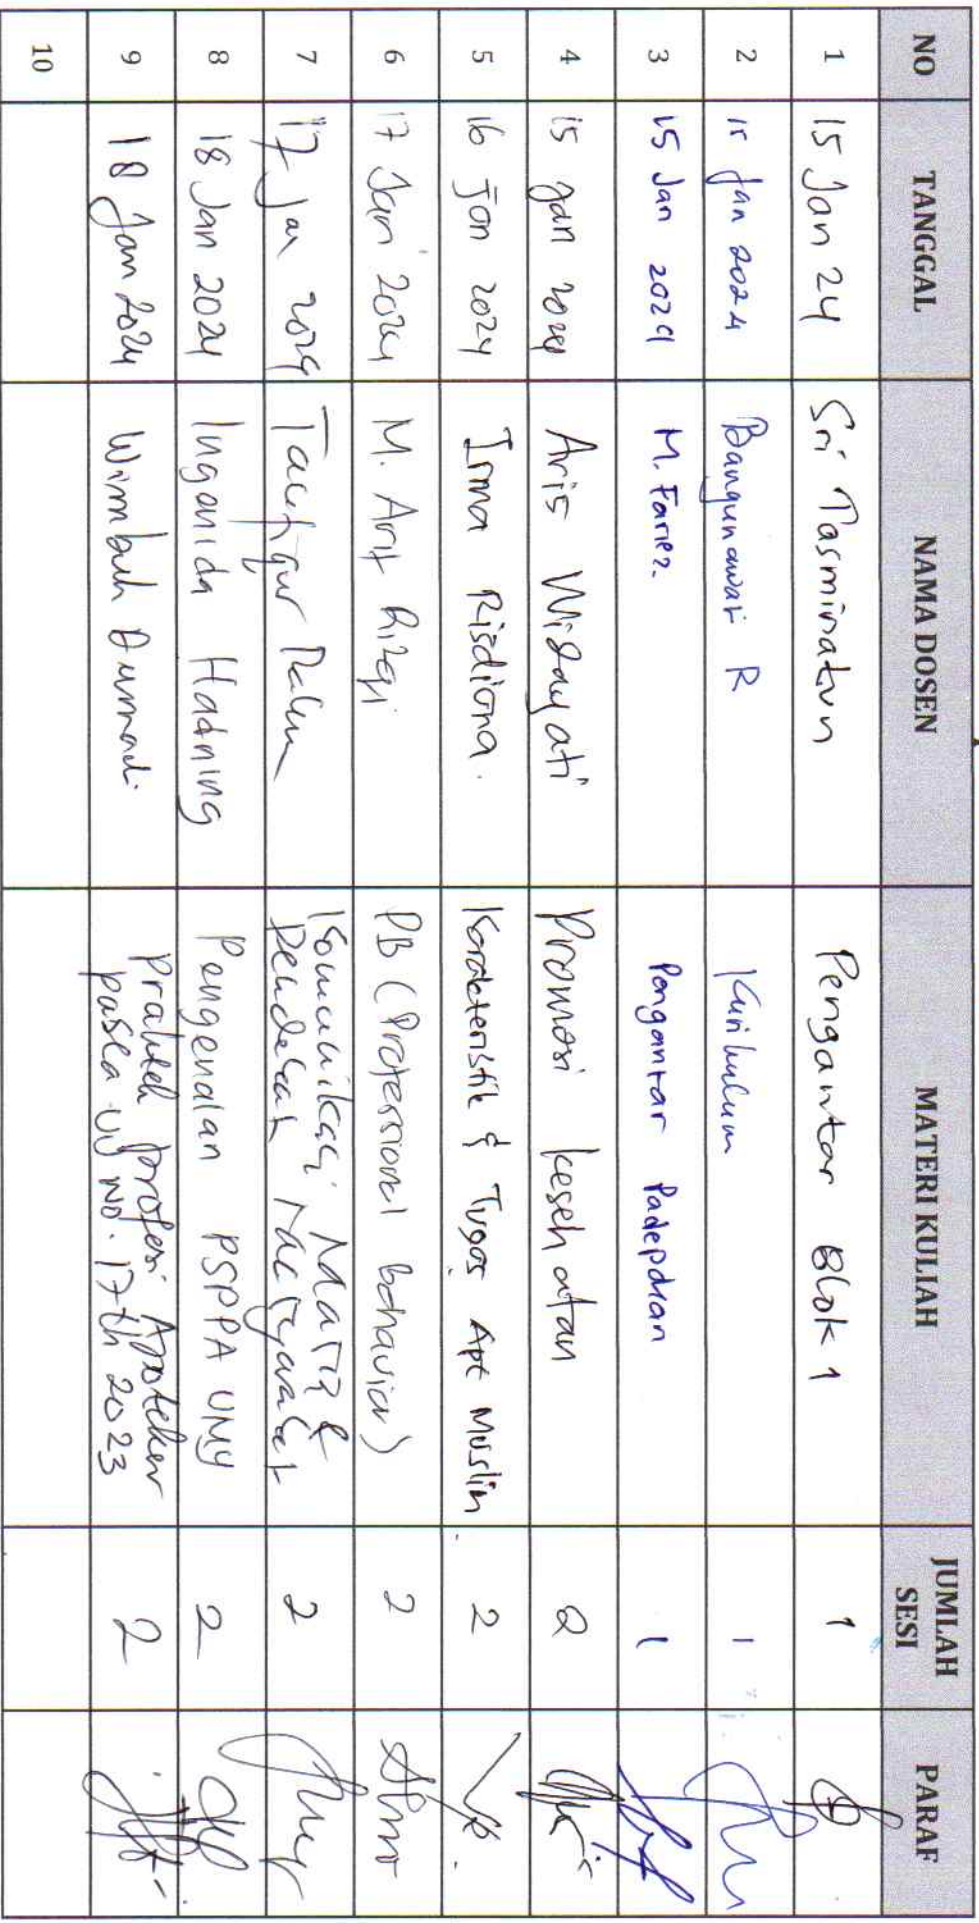 NO TANGGAL NAMA DOSEN MATERI KULIAH JUMLAH SESI PARAF
1 15 Jan 24 Sri Tasminatun Pengantar Blok 1 1
2 15 Jan 2024 Bangunawati R Kurikulum 1
3 15 Jan 2024 M. Fariez. Pengantar Padepokan 1
4 15 Jan 2024 Aris Widayati Promosi kesehatan 2
5 16 Jan 2024 Irma Risdiana. Karakteristik & Tugas Apt Muslim 2
6 17 Jan 2024 M. Arif Rizqi PB (Professional behavior) 2
7 17 Jan 2024 Taufiqur Komunikasi &
2
8 18 Jan 2024 Ingenida Hadning Pengenalan PSPPA UMY 2
9 18 Jan 2024 Wimbuh Dumadi. Praktek profesi Apoteker
pasca UU No. 17 th 2023 2
10